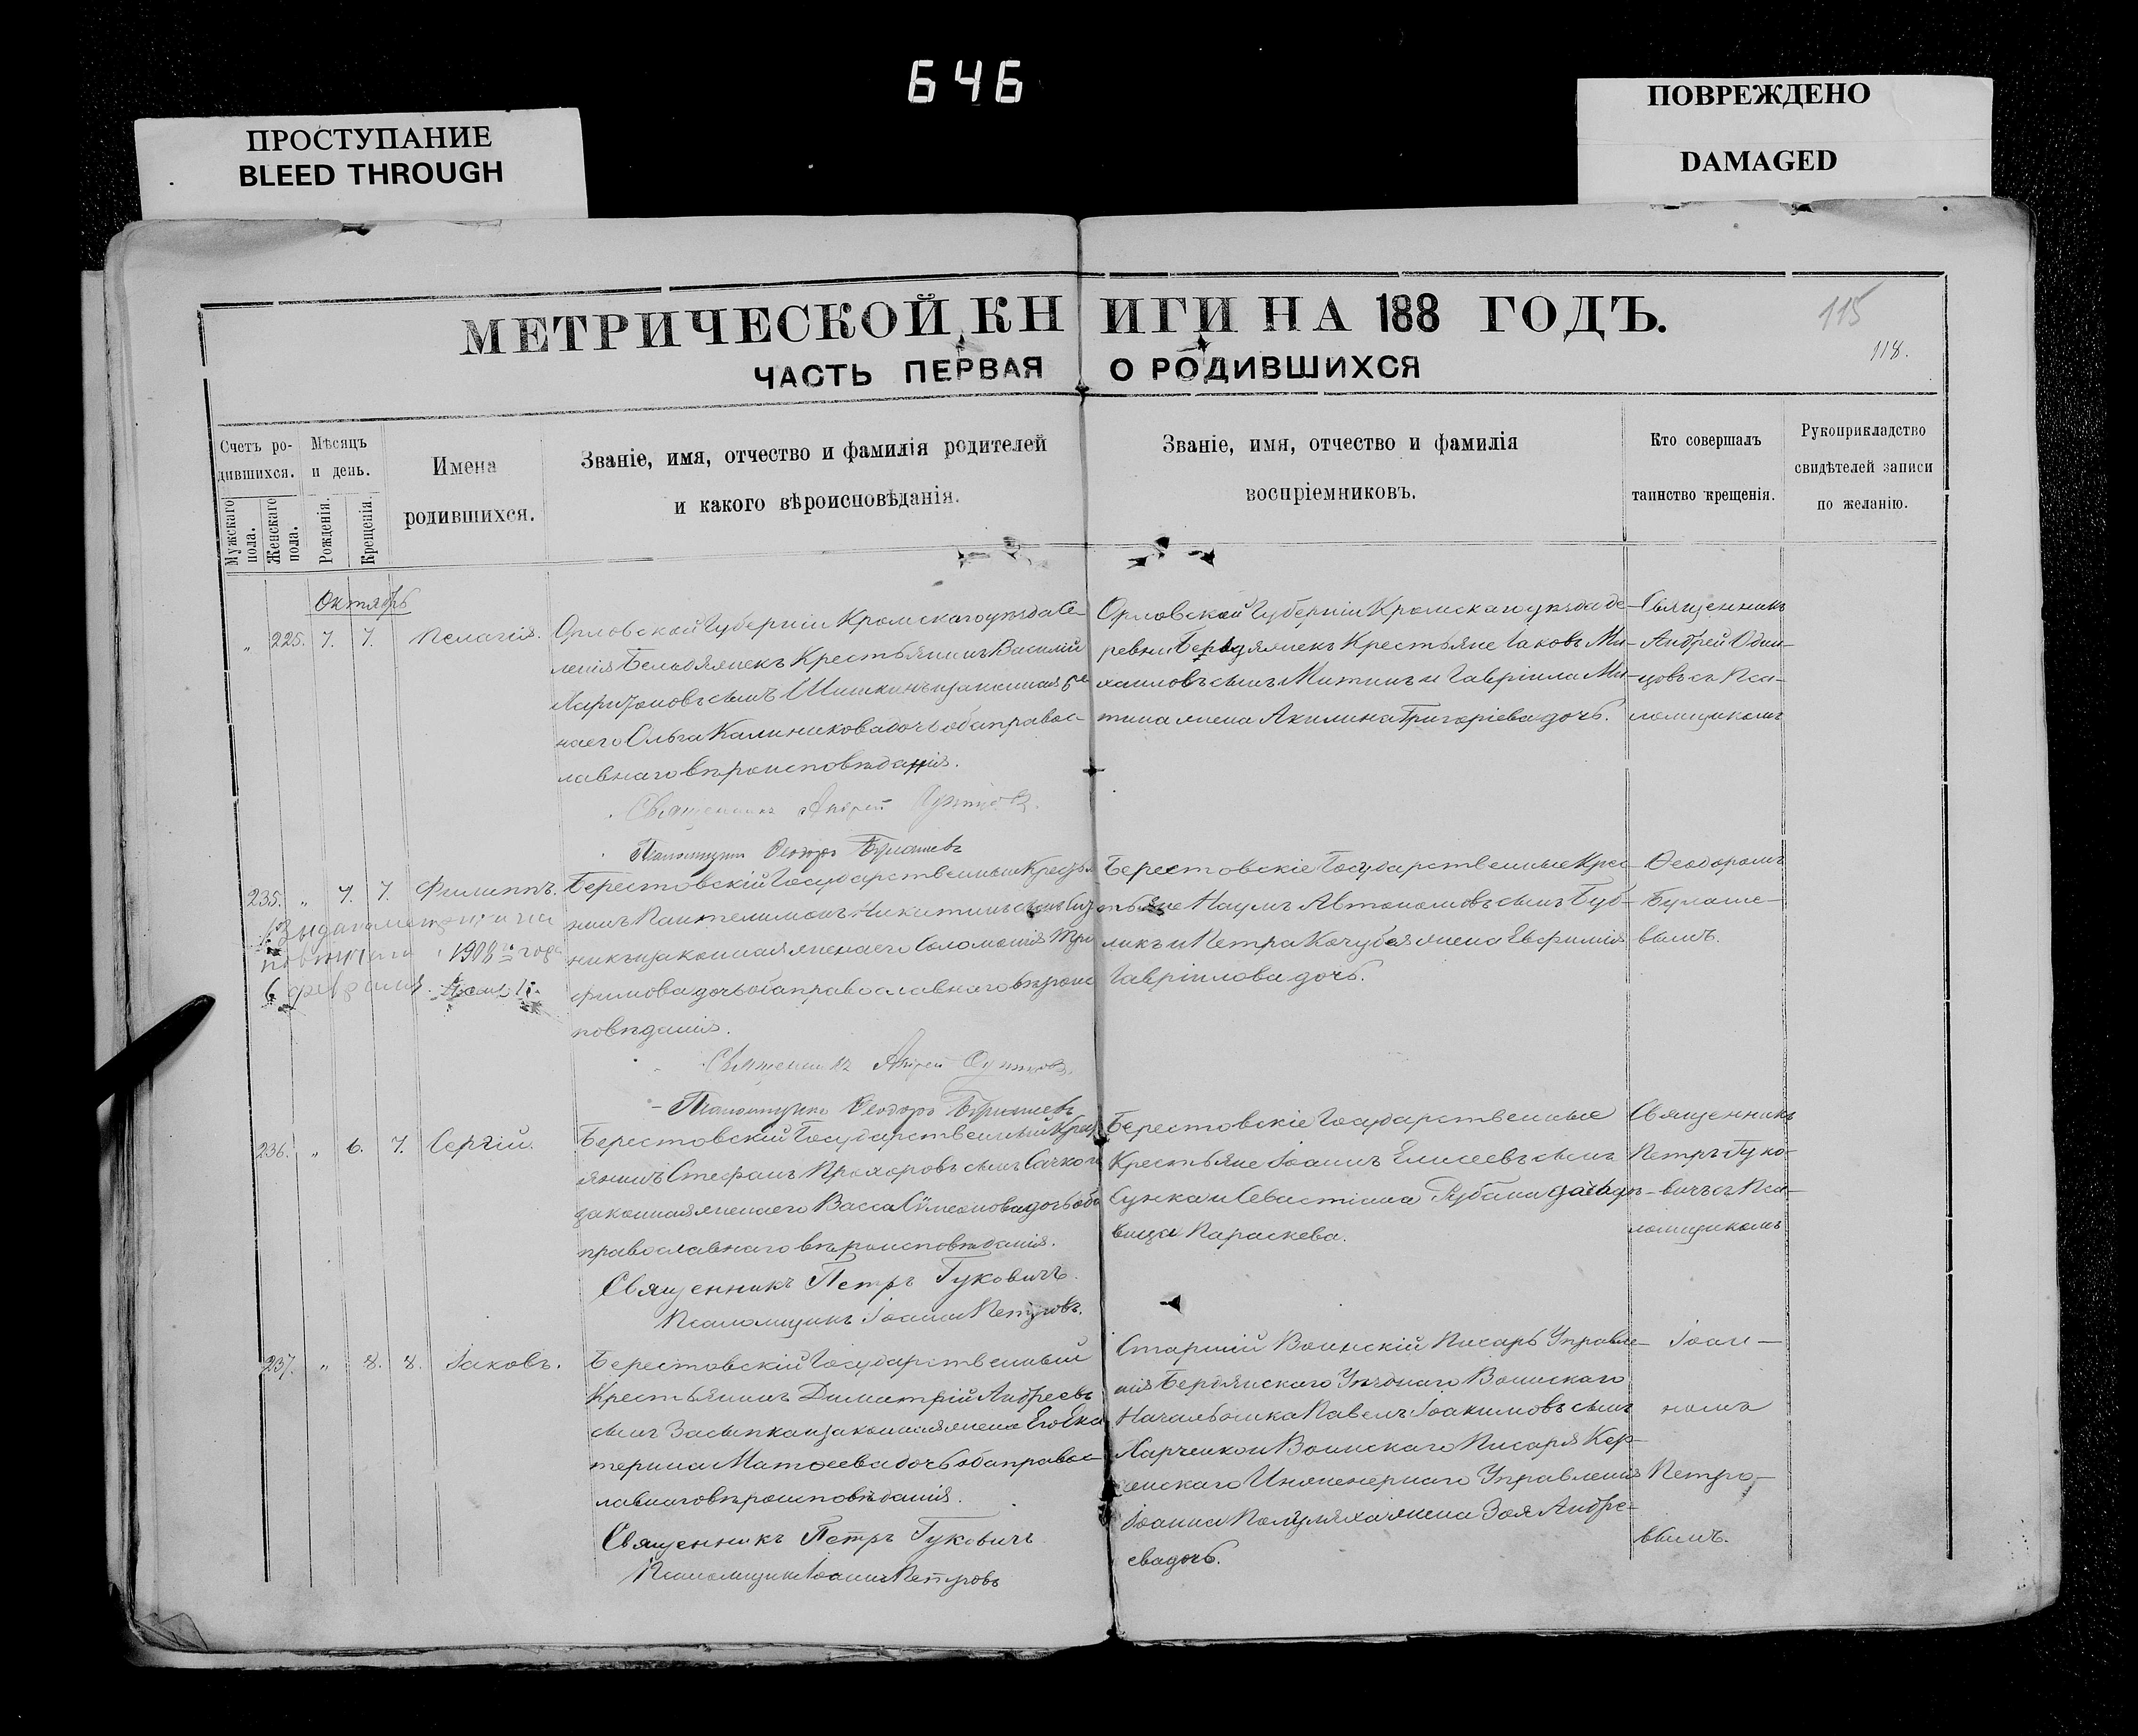 646
ПРОСТУПАНИЕ
BLEED THROUGH
ПОВРЕЖДЕНО
DAMAGED
МЕТРИЧЕСКОЙ КНИГИ НА 188 ГОДЪ.
115
118.
ЧАСТЬ ПЕРВАЯ О РОДИВШИХСЯ
Счетъ ро-
дившихся.
Мужскаго пола.
Женскаго пола.
Мѣсяцъ
и день.
Рожденія.
Крещенія.
Имена
родившихся.
Званіе, имя, отчество и фамилія родителей
и какого вѣроисповѣданія.
Званіе, имя, отчество и фамилія
воспріемниковъ.
Кто совершалъ
таинство крещенія.
Рукоприкладство
свидѣтелей записи
по желанію.
Октябрь
„ 225. 7. 7. Пелагія.
Орловской Губерніи Кромскаго уѣзда Се-
ленія Крестьянинъ Василій
Харитоновъ сынъ Шишкинъ и законная
жена его Ольга Калиникова дочь оба правос-
лавнаго вѣроисповѣданія.
Священникъ Андрей
Псаломщикъ Ѳеодоръ
Орловской Губерніи Кромскаго уѣзда де-
ревни Крестьяне Іаковъ Ми-
хаиловъ сынъ Митинъ и Гавріила Ми-
тина жена Акилина Григоріева дочь.
Священникъ
Андрей Один-
цовъ съ Пса-
ломщикомъ
235. „ 7. 7. Филиппъ.
1908 го года
6 февраля
Берестовскій Государственный Кресть
нинъ Пантелимонъ Никитинъ сынъ
никъ и законная жена его Соломонія Тро
фимова дочь оба православнаго вѣроис
повѣданія.
Священникъ Андрей
Псаломщикъ Ѳеодоръ
Берестовскіе Государственные Крес-
тьяне Наумъ Автономовъ сынъ Буб-
ликъ и Петра Кочубея жена Евфимія
Гавріилова дочь.
Ѳеодоромъ
Булаше-
вымъ.
236. „ 6. 7. Сергій.
Берестовскій Государственный Крест
янинъ Стефанъ Прохоровъ сынъ
законная жена его Васса Сѵмеонова дочь оба
православнаго вѣроисповѣданія.
Священникъ Петръ Гуковичъ.
Псаломщикъ Іоаннъ Петровъ.
Берестовскіе Государственные
Крестьяне Іоаннъ Елисеевъ сынъ
Сунка и Севастіана Рубана
вица Параскева.
Священникъ
Петръ Гуко-
вичъ съ Пса-
ломщикомъ
237. „ 8. 8. Іаковъ.
Берестовскій Государственный
Крестьянинъ Димитрій Андреевъ
сынъ Засыпка и законная жена его Ека
терина Матѳеева дочь оба правос-
лавнаго вѣроисповѣданія.
Священникъ Петръ Гуковичъ
Псаломщикъ Іоаннъ Петровъ
Старшій Воинскій Писарь Управле-
нія Бердянскаго Уѣзднаго Воинскаго
Начальника Павелъ Іоакимовъ сынъ
Харченко и Воинскаго Писаря Кер-
ченскаго Инженернаго Управленія
Іоанна жена Зоя Андре-
ева дочь.
Іоан-
номъ
Петро-
вымъ.